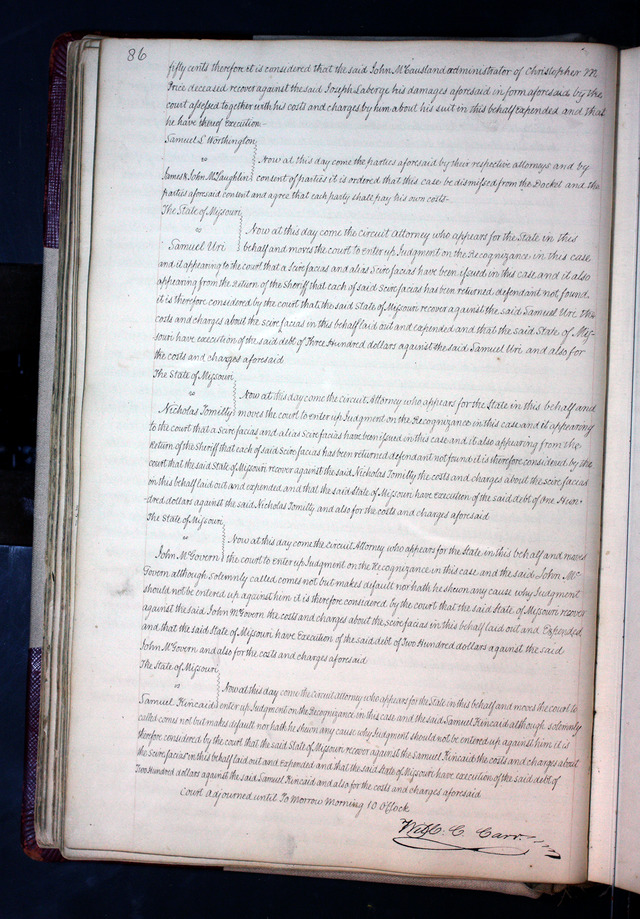 86
fifty cents therefore it is considered that the said John McCausland administrator of Christopher M
Price deceased recover against the said Joseph Laberge his damages aforesaid in form aforesaid by the
court assessed together with his costs and charges by him about his suit in this behalf expended and that
he have thereof Execution -
Samuel L Worthington
vs
Now at this day come the parties aforesaid by their respective attorneys and by
James & John McLaughlin consent of parties it is ordered that this case be dismissed from the Docket and the
parties aforesaid consent and agree that each party shall pay his own costs -
The State of Missouri
vs
Now at this day come the circuit attorney who appears for the State in this
Samuel Uri behalf and moves the court to enter up Judgment on the Recognizance in this case
and it appearing to the court that a Scire facias and alias Scire facias have been issued in this case and it also
appearing from the Return of the Sheriff that each of said Scire facias has been returned defendant not found
it is therefore considered by the court that the said State of Missouri recover against the said Samuel Uri the
costs and charges about the scire facias in this behalf laid out and expended and that the said State of Mis-
souri have execution of the said debt of Three Hundred dollars against the said Samuel Uri and also for
the costs and charges aforesaid
The State of Missouri
vs
Now at this day come the circuit Attorney who appears for the State in this behalf and
Nicholas Tomilly moves the court to enter up Judgment on the Recognizance in this case and it appearing
to the court that a scire facias and alias Scire facias have been issued in this case and it also appearing from the
Return of the Sheriff that each of said Scire facias has been returned defendant not found it is therefore considered by the
court that the said State of Missouri recover against the said Nicholas Tomilly the costs and charges about the scire facias
in this behalf laid out and expended and that the said State of Missouri have execution of the said debt of One Hun-
dred dollars against the said Nicholas Tomilly and also for the costs and charges aforesaid
The State of Missouri
vs
Now at this day come the circuit Attorney who appears for the State in this behalf and moves
John McGovern the court to enter up Judgment on the Recognizance in this case and the said John Mc
Govern although solemnly called comes not but makes default nor hath he shown any cause why Judgment
should not be entered up against him it is therefore considered by the court that the said State of Missouri recover
against the said John McGovern the costs and charges about the scire facias in this behalf laid out and Expended
and that the said State of Missouri have Execution of the said debt of Two Hundred dollars against the said
John McGovern and also for the costs and charges aforesaid
The State of Missouri
vs
Now at this day come the circuit attorney who appears for the State in this behalf and moves the court to
Samuel Kincaid enter up Judgment on the Recognizance in this case and the said Samuel Kincaid although solemnly
called comes not but makes default nor hath he shown any cause why Judgment should not be entered up against him it is
therefore considered by the court that the said State of Missouri recover against the Samuel Kincaid the costs and charges about
the Scire facias in this behalf laid out and Expended and that the said State of Missouri have execution of the said debt of
Two Hundred dollars against the said Samuel Kincaid and also for the costs and charges aforesaid
Court adjourned until Tomorrow Morning 10 O'Clock
Will. C. Carr